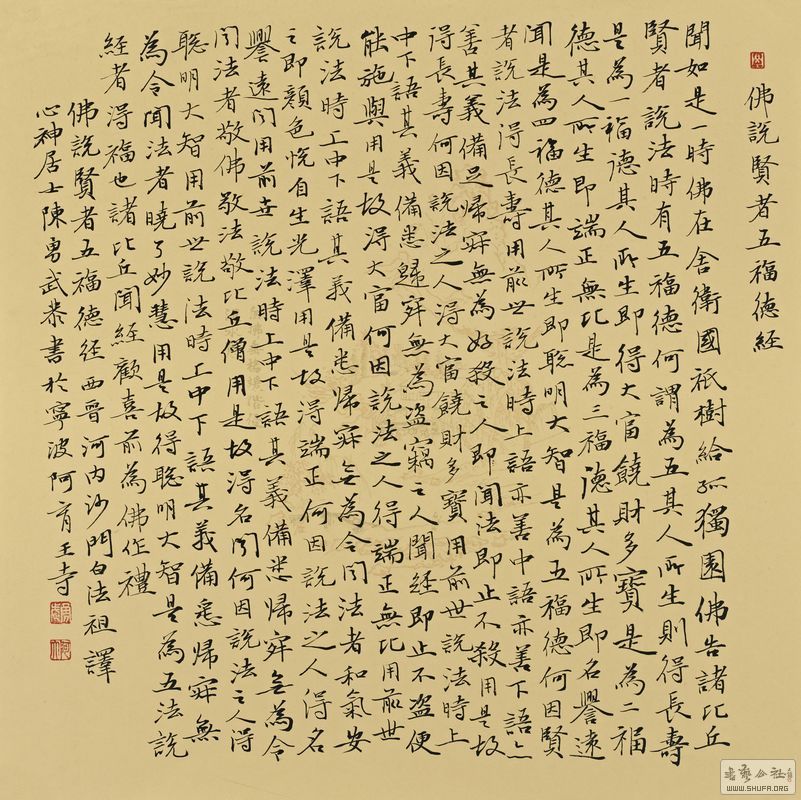 佛說賢者五福德經
聞如是一時佛在舍衛國祇樹給孤獨園佛告諸比丘
賢者說法時有五福德何謂為五其人所生則得長壽
是為一福德其人所生即得大富饒財多寶是為二福
德其人所生即端正無比是為三福德其人所生即名譽遠
聞是為四福德其人所生即聰明大智是為五福德何因賢
者說法得長壽用前世說法時上語亦善中語亦善下語亦
善其義備足歸寂無為好殺之人即聞法即止不殺用是故
得長壽何因說法之人得大富饒財多寶用前世說法時上
中下語其義備悉歸寂無為盜竊之人聞經即止不盜便
能施與用是故得大富何因說法之人得端正無比用前世
說法時上中下語其義備悉歸寂無為令聞法者和氣安
之即顏色悅自生光澤用是故得端正何因說法之人得名
譽遠聞用前世說法時上中下語其義備悉歸寂無為令
聞法者敬佛敬法敬比丘僧用是故得名聞何因說法之人得
聰明大智用前世說法時上中下語其義備悉歸寂無
為令聞法者曉了妙慧用是故得聰明大智是為五法說
經者得福也諸比丘聞經歡喜前為佛作禮
佛說賢者五福德經西晉河內沙門白法祖譯
心神居士陳勇武恭書於寧波阿育王寺
書藝公社
WWW.SHUFA.ORG